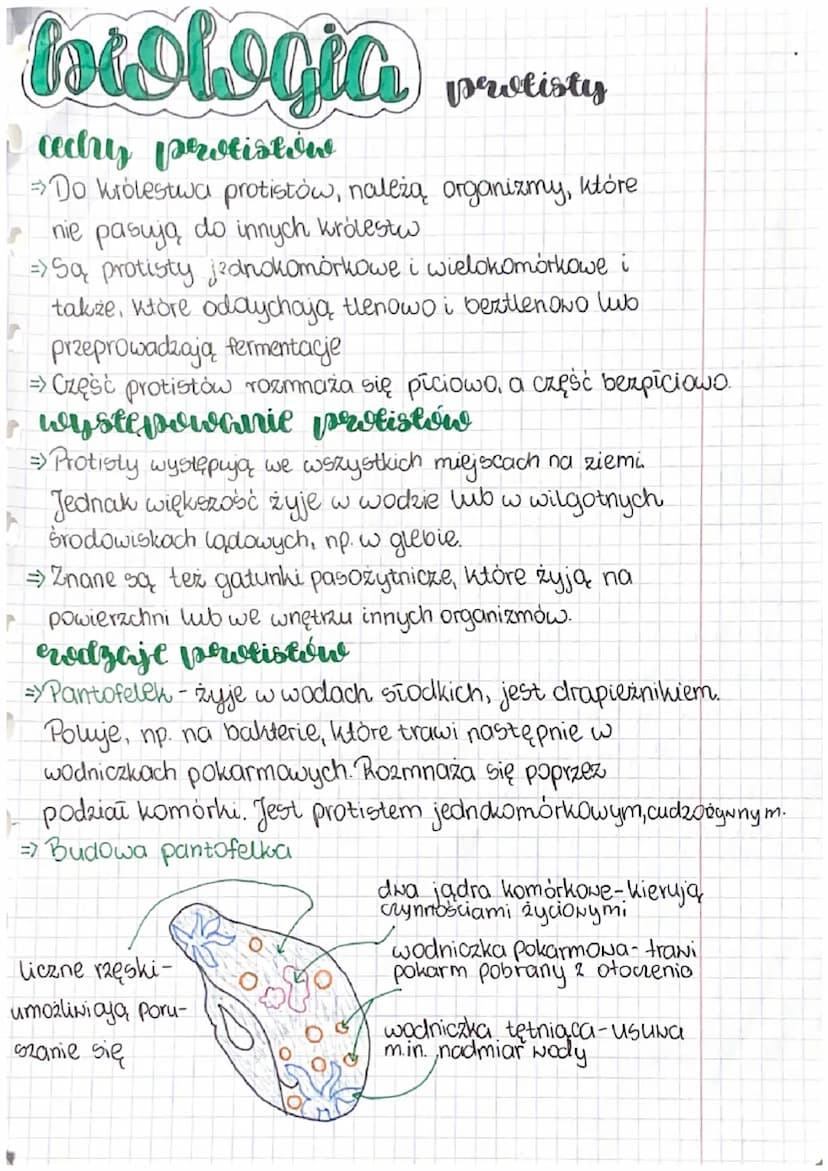 biologia
protisty
cechy protistów
=> Do królestwa protistów, należą organizmy, które
nie pasują do innych królestw
=> Są protisty jednokomórkowe i wielokomórkowe i
także, które oddychają tlenowo i beztlenowo lub
przeprowadzają fermentacje
=> Część protistów rozmnaża się płciowo, a część bezpłciowo.
występowanie protistów
=> Protisty występują we wszystkich miejscach na ziemi.
Jednak większość żyje w wodzie lub w wilgotnych
środowiskach lądowych, np. w glebie.
=> Znane są też gatunki pasożytnicze, które żyją na
powierzchni lub we wnętrzu innych organizmów.
rodzaje protistów
=> Pantofelek - żyje w wodach słodkich, jest drapieżnikiem.
Poluje, np. na bakterie, które trawi następnie w
wodniczkach pokarmowych. Rozmnaża się poprzez
podział komórki. Jest protistem jednokomórkowym, cudzożywnym.
=> Budowa pantofelka
dwa jądra komórkowe - kierują
czynnościami życiowymi
wodniczka pokarmowa - trawi
pokarm pobrany z otoczenia
liczne rzęski -
umożliwiają poru-
szanie się
wodniczka tętniąca - usuwa
m.in. nadmiar wody